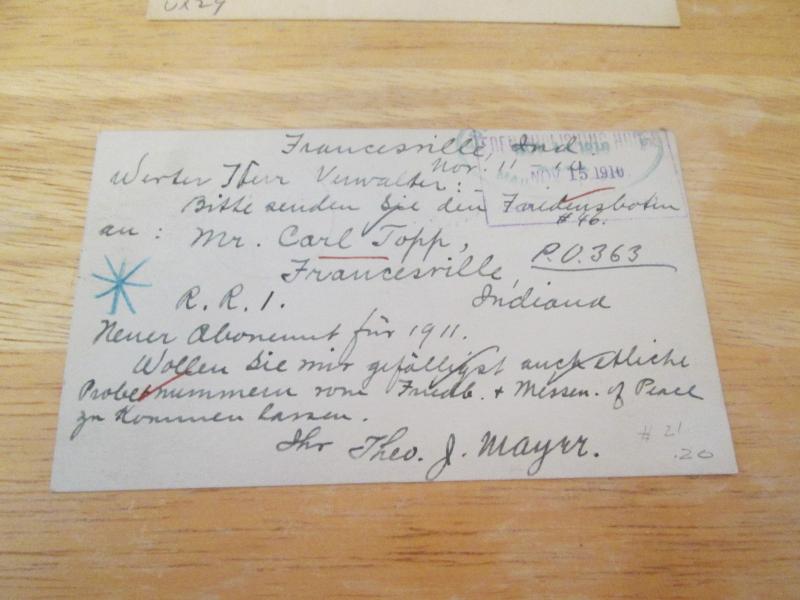 Francesville, Ind.
Nov. 11
NOV 15 1910
Werter Herr Verwalter:
Bitte senden Sie den Friedensboten
# 46.
an: Mr. Carl Topp,
P.O. 363
Francesville,
R.R.1. Indiana
Neuer Abonennt für 1911.
Wollen Sie mir gefälligst auch etliche
Probenummern vom Friedb. + Messen. of Peace
zu kommen lassen.
Ihr Theo. J. Mayer.
# 21
.20